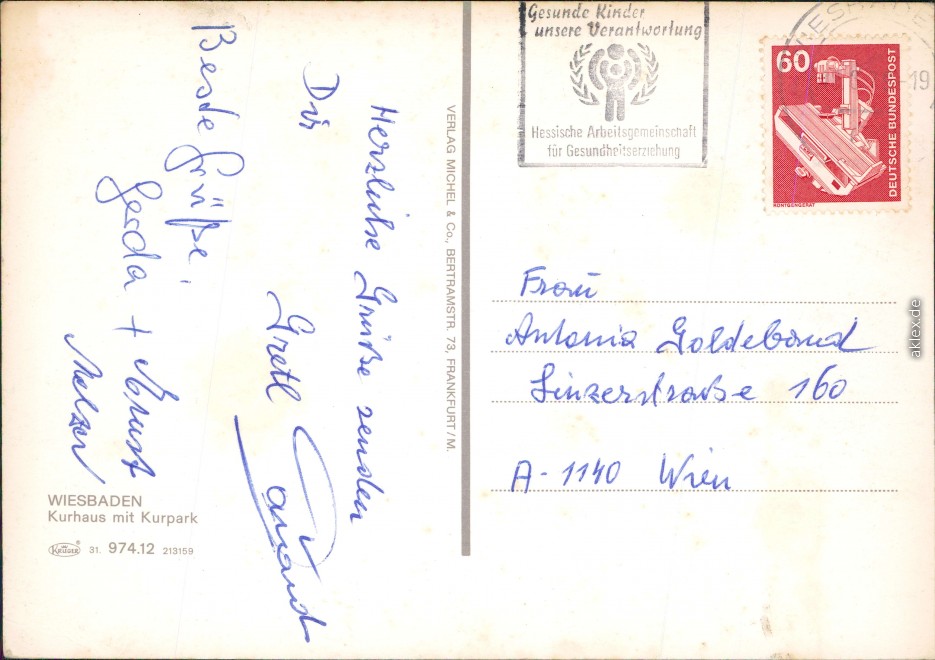 Herzliche Grüße senden
Dir
Gretl
Beste Grüße
Gerda +
WIESBADEN
Kurhaus mit Kurpark
KRÜGER
31. 974.12 213159
VERLAG MICHEL & Co., BERTRAMSTR. 73, FRANKFURT/M.
Gesunde Kinder
unsere Verantwortung
Hessische Arbeitsgemeinschaft
für Gesundheitserziehung
-19
60
DEUTSCHE BUNDESPOST
RÖNTGENGERÄT
Frau
Antonia Goldeband
Linzerstraße 160
A-1140 Wien
aklex.de